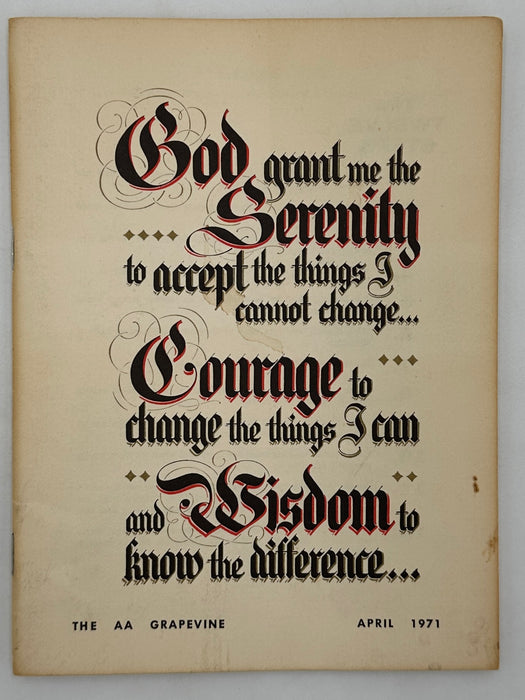 God grant me the
Serenity
to accept the things I
cannot change...
Courage to
change the things I can
and Wisdom to
know the difference...
THE AA GRAPEVINE APRIL 1971